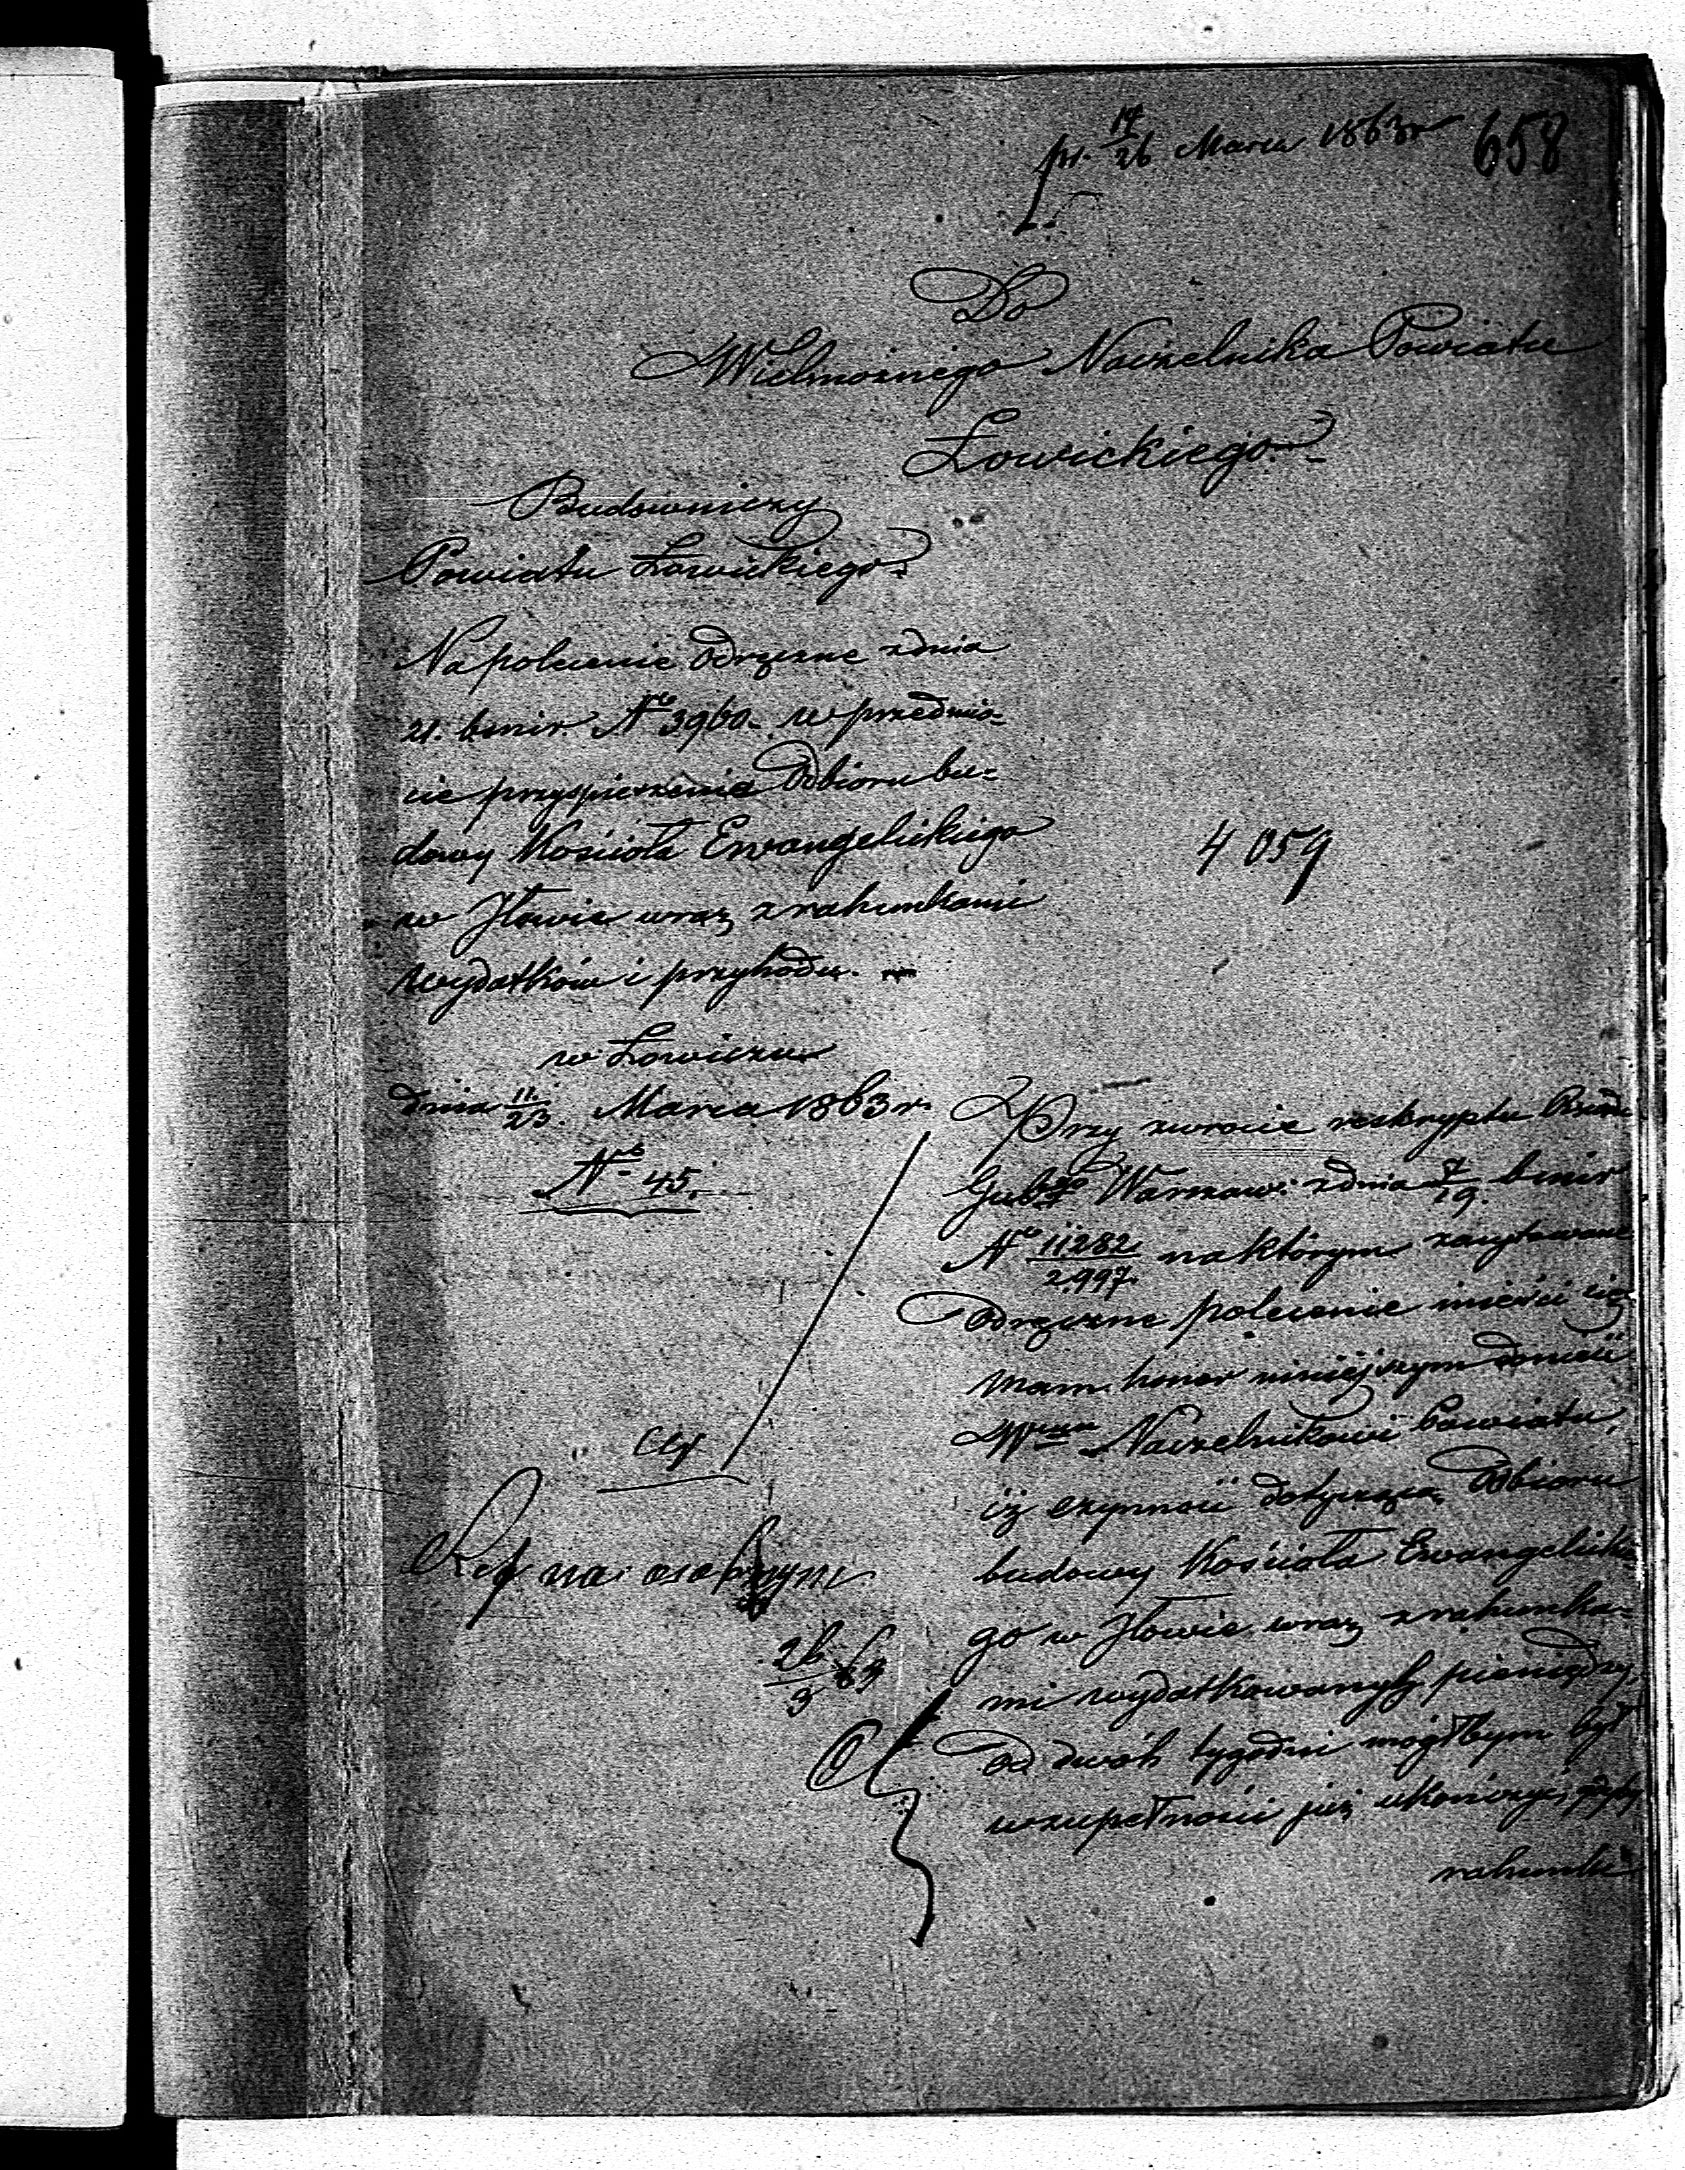 pr. 14/26 Marca 1863 r
658
Do
Wielmożnego Naczelnika Powiatu
Łowickiego
Budowniczy
Powiatu Łowickiego
Na polecenie odręczne z dnia
21. b m i r. No 3960. w przedmio-
cie przyspieszenia Odbioru bu-
dowy Kościoła Ewangelickiego
w Iłowie wraz z rachunkami
wydatków i przychodu.
4059
w Łowiczu
dnia 11/23. Marca 1863 r.
No 45.
Przy zwrocie reskryptu Rządu
Gub Warszaw: z dnia 7/19. b m i r
No 11282/2997. na którym zacytowane
Odręczne polecenie mieści się
mam honor niniejszym donieść
Naczelnikowi Powiatu,
iż czynność dotyczącą Odbioru
budowy Kościoła Ewangelickie
go w Iłowie wraz z rachunka-
mi wydatkowanych pieniędzy,
od dwóch tygodni mógłbym był
w zupełności już ukończyć, gdyby
rachunki
na osobnym
26/3 63